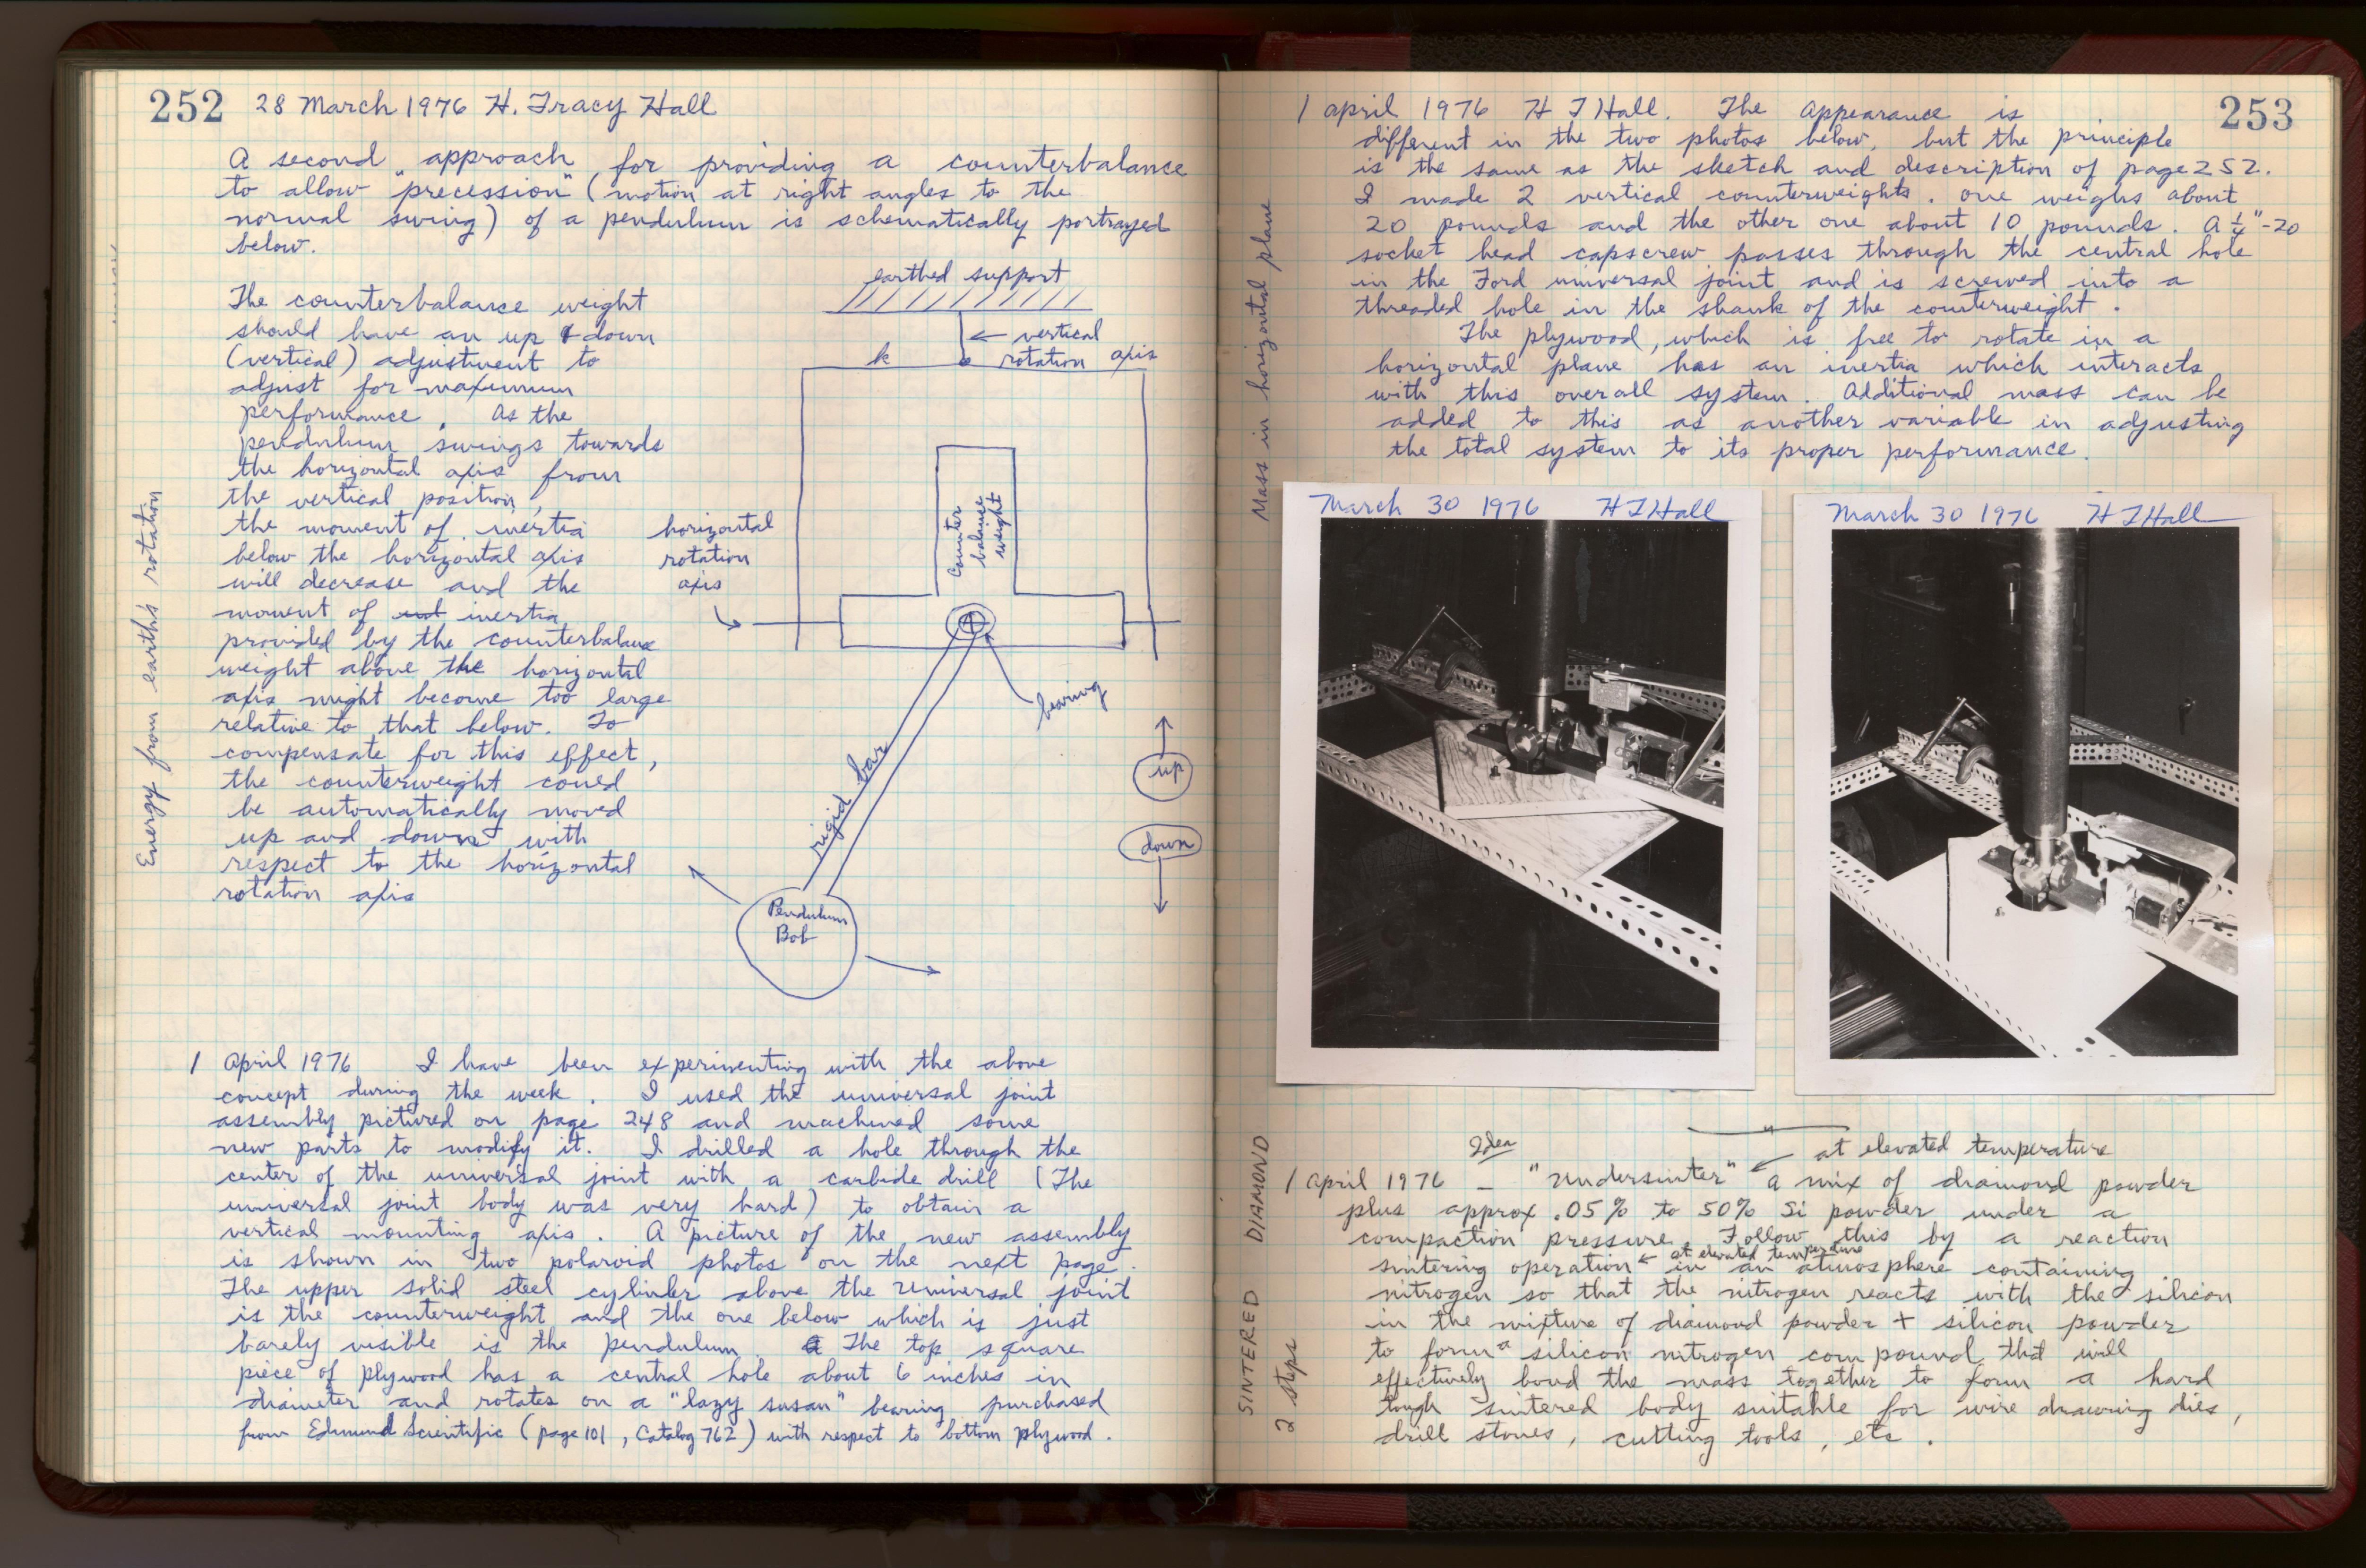 252 28 March 1976 H. Tracy Hall
A second approach for providing a counterbalance
to allow "precession" (motion at right angles to the
normal swing) of a pendulum is schematically portrayed
below.
The counterbalance weight
should have an up & down
(vertical) adjustment to
adjust for maximum
performance. As the
pendulum swings towards
the horizontal axis from
the vertical position,
the moment of inertia
below the horizontal axis
will decrease and the
moment of inertia
provided by the counterbalance
weight above the horizontal
axis might become too large
relative to that below. To
compensate for this effect,
the counterweight could
be automatically moved
up and down with
respect to the horizontal
rotation axis
Energy from earth's rotation
earthed support
vertical
rotation axis
k
Counter
balance
weight
horizontal
rotation
axis
bearing
rigid bar
up
down
Pendulum
Bob
1 April 1976 I have been experimenting with the above
concept during the week. I used the universal joint
assembly pictured on page 248 and machined some
new parts to modify it. I drilled a hole through the
center of the universal joint with a carbide drill (The
universal joint body was very hard) to obtain a
vertical mounting axis. A picture of the new assembly
is shown in two polaroid photos on the next page.
The upper solid steel cylinder above the universal joint
is the counterweight and the one below which is just
barely visible is the pendulum. The top square
piece of plywood has a central hole about 6 inches in
diameter and rotates on a "lazy susan" bearing purchased
from Edmund Scientific (page 101, Catalog 762) with respect to bottom plywood.
1 April 1976 H T Hall. The appearance is 253
different in the two photos below, but the principle
is the same as the sketch and description of page 252.
I made 2 vertical counterweights. one weighs about
20 pounds and the other one about 10 pounds. A 1/4"-20
socket head capscrew passes through the central hole
in the Ford universal joint and is screwed into a
threaded hole in the shank of the counterweight.
The plywood, which is free to rotate in a
horizontal plane has an inertia which interacts
with this overall system. Additional mass can be
added to this as another variable in adjusting
the total system to its proper performance.
Mass in horizontal plane
March 30 1976 H T Hall
March 30 1976 H T Hall
SINTERED DIAMOND
2 steps
Idea
at elevated temperature
1 April 1976 — "Undersinter" a mix of diamond powder
plus approx .05% to 50% Si powder under a
compaction pressure. Follow this by a reaction
at elevated temperature
sintering operation in an atmosphere containing
nitrogen so that the nitrogen reacts with the silicon
in the mixture of diamond powder + silicon powder
to form a silicon nitrogen compound that will
effectively bond the mass together to form a hard
tough sintered body suitable for wire drawing dies,
drill stones, cutting tools, etc.